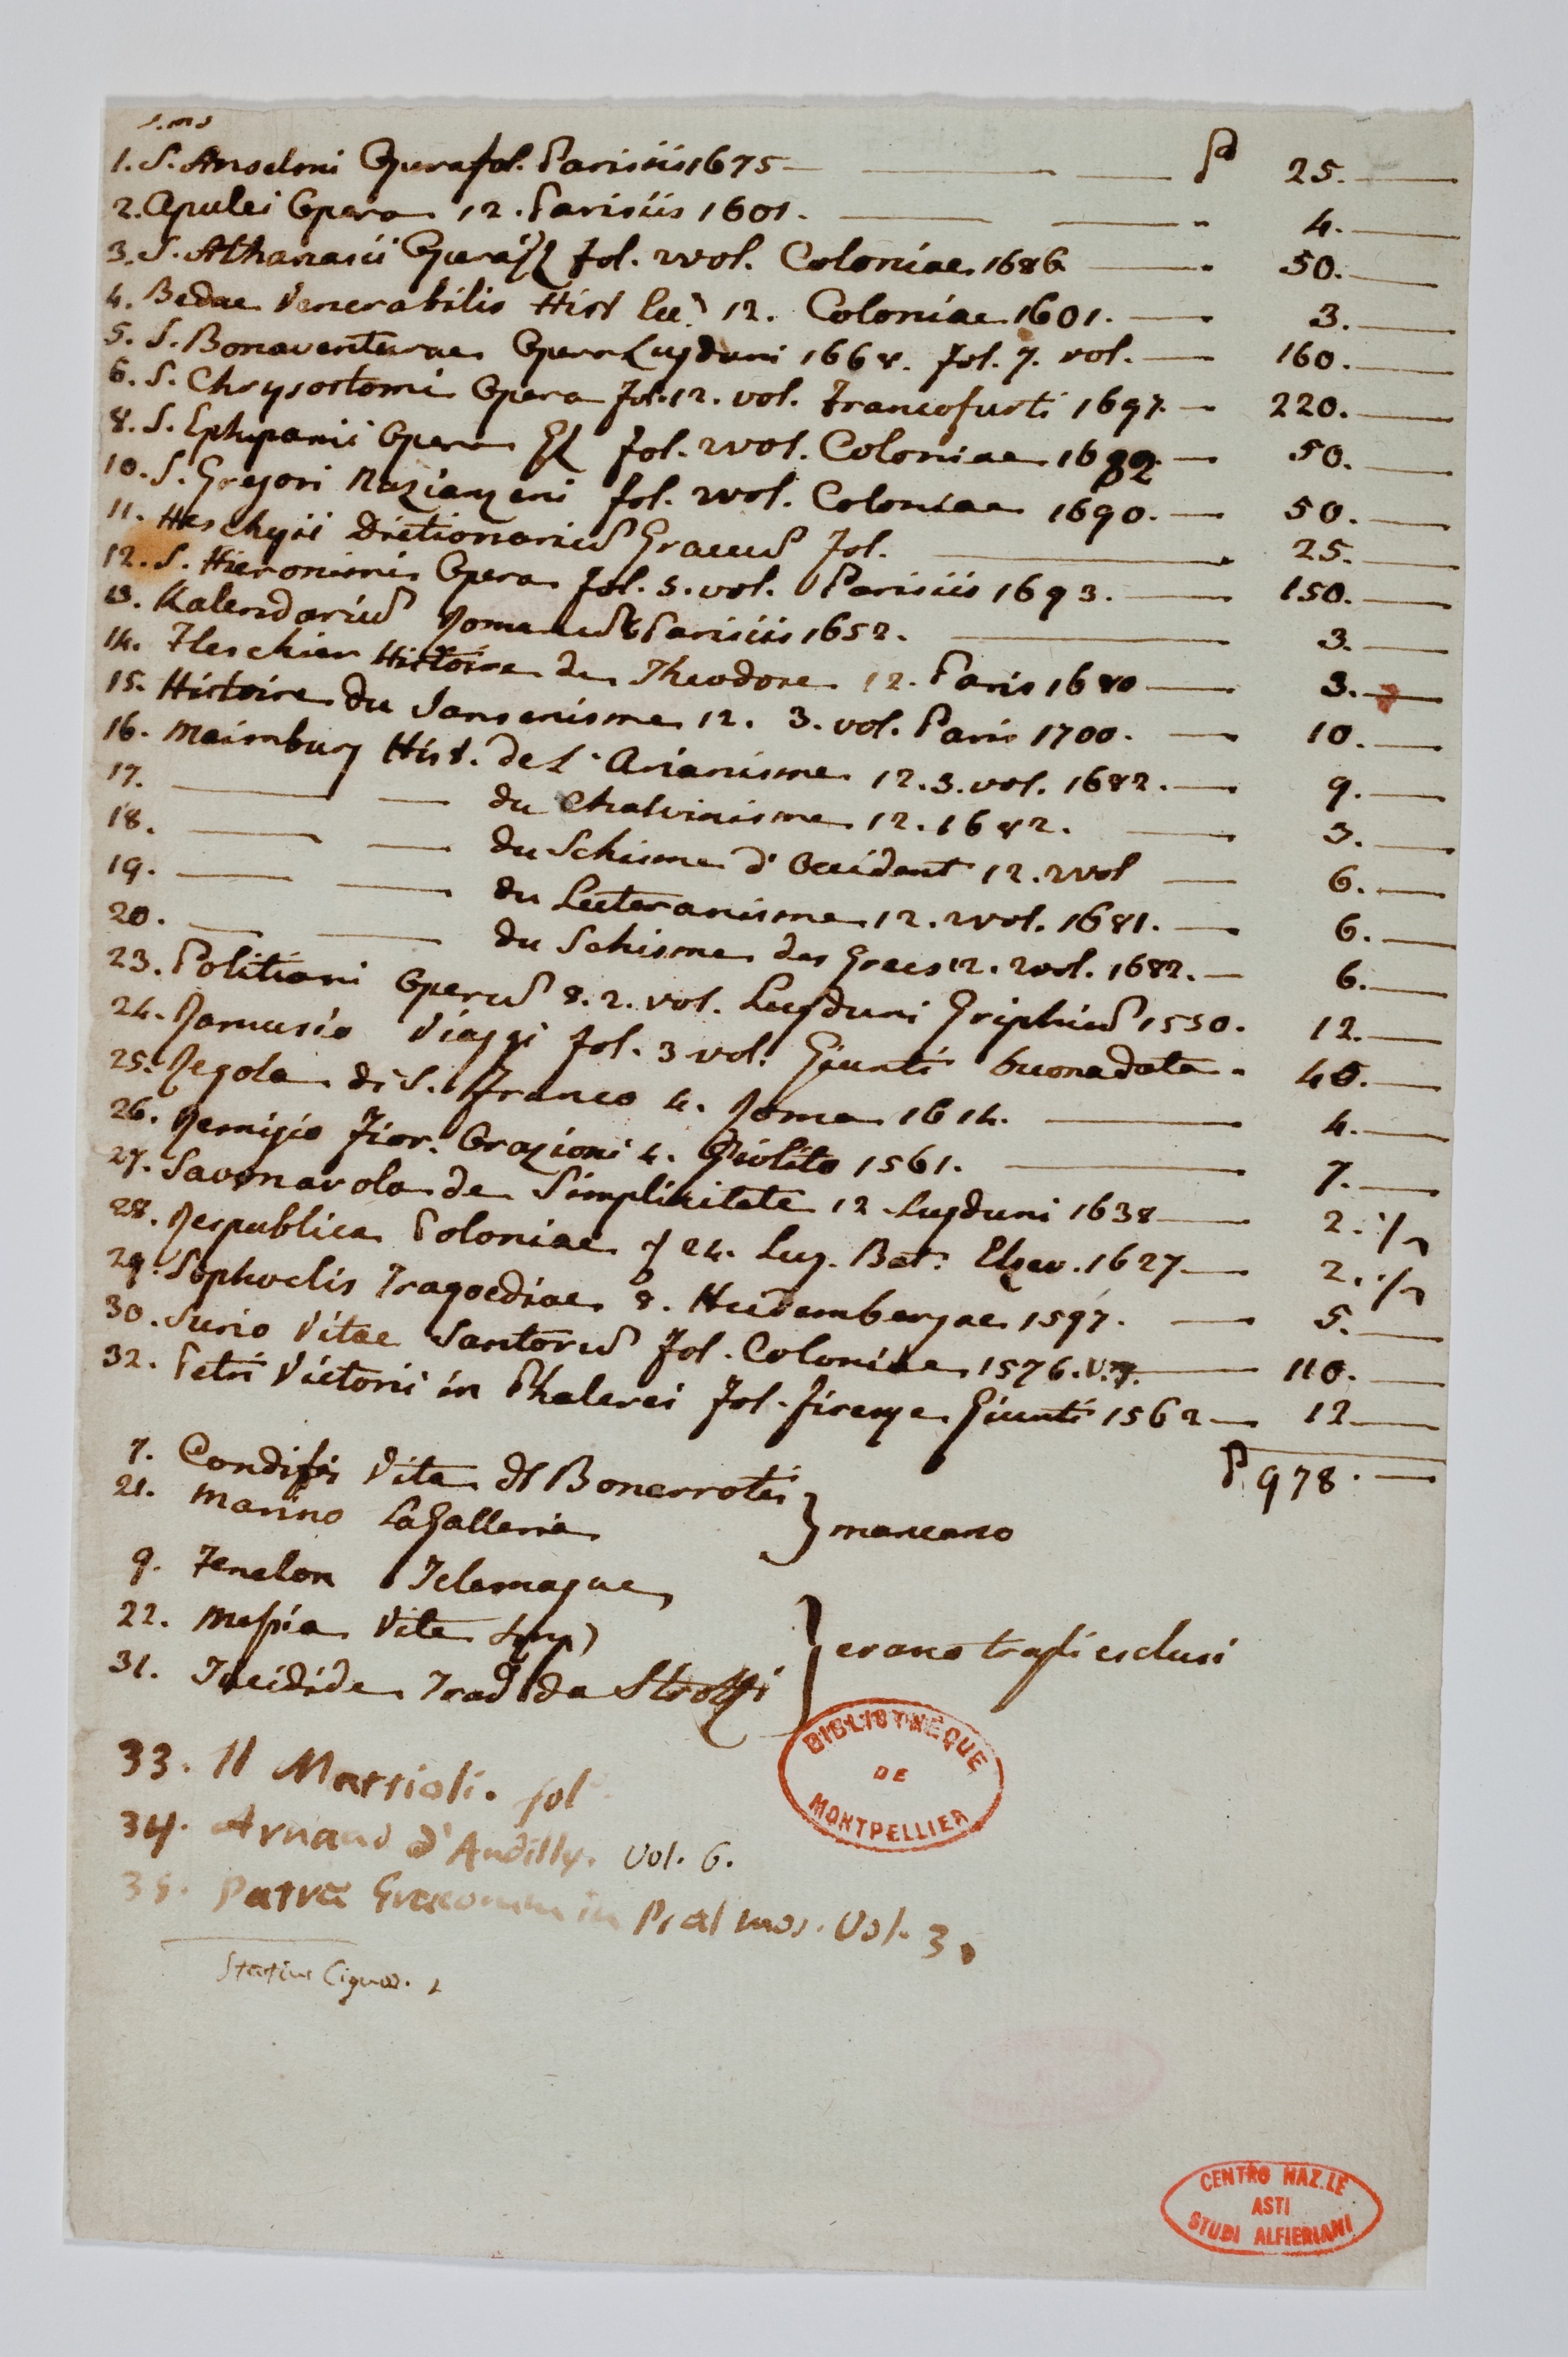 1. S. Anselmi Opera fol. Parisiis 1675 — P 25. —
2. Apulei Opera 12. Parisiis 1601. — 4. —
3. S. Athanasii Opera fol. 2 vol. Coloniae 1686 — 50. —
4. Bedae Venerabilis Hist Ecc. 12. Coloniae 1601. — 3. —
5. S. Bonaventurae Opera Lugduni 1668. fol. 7. vol. — 160. —
6. S. Chrysostomi Opera fol. 12. vol. Francofurti 1697. — 220. —
8. S. Ephipanii Opera fol. 2 vol. Coloniae 1682 — 50. —
10. S. Gregori Nazianzeni fol. 2 vol. Coloniae 1690. — 50. —
11. Heschyii Dictionariu Graecu fol. — 25. —
12. S. Hieronimi Opera fol. 5. vol. Parisiis 1693. — 150. —
13. Kalendariu Romanu Parisiis 1652. — 3. —
14. Fleschier Histoire de Theodore 12. Paris 1680 — 3. —
15. Histoire du Jansenisme 12. 3. vol. Paris 1700. — 10. —
16. Maimburg Hist. de L'Arianisme 12. 3. vol. 1682. — 9. —
17. — du Chalvinisme 12. 1682. — 3. —
18. — du Schisme d'Occident 12. 2 vol — 6. —
19. — du Luteranisme 12. 2 vol. 1681. — 6. —
20. — du Schisme des Grecs 12. 2 vol. 1682. — 6. —
23. Politiani Operu 8. 2. vol. Lugduni Griphiu 1550. 12. —
24. Ramusio Viaggi fol. 3 vol. Giunti buona data. 40. —
25. Regola di S. Franco 4. Roma 1614. — 4. —
26. Remigio Fior. Orazioni 4. Giolito 1561. — 7. —
27. Savonarola de Simplicitate 12. Lugduni 1638 — 2. 1/2
28. Respublica Poloniae 24. Lug. Bat. Elzev. 1627 — 2. 1/2
29. Sophoclis Tragoediae 8. Heidembergae 1597. — 5. —
30. Surio Vitae Santoru fol. Coloniae 1576. v. 7. — 110. —
32. Petri Victorii in Phalerei fol. firenze Giunti 1562 — 12 —
P 978. —
7. Condifi Vita di Bonarroti
21. Marino La Galleria } mancano
9. Fenelon Telemaque
22. Messia Vite Imp
31. Tucidide Trad da Strozzi } erano trassi esclusi
33. Il Mattioli. fol
34. Arnaud d'Andilly. Vol. 6.
35. Patrū Graecorum in Psalmos. Vol. 3.
BIBLIOTHÈQUE
DE
MONTPELLIER
CENTRO NAZ.LE
ASTI
STUDI ALFIERIANI